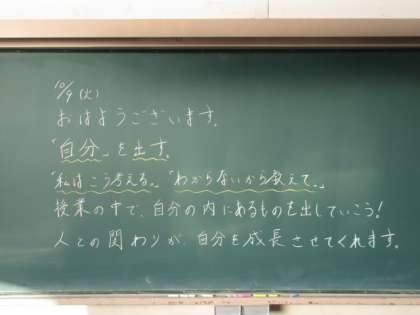 10/9(火)
おはようございます。
「自分」を出す。
「私はこう考える。」「わからないから教えて。」
授業の中で、自分の内にあるものを出していこう!
人との関わりが、自分を成長させてくれます。